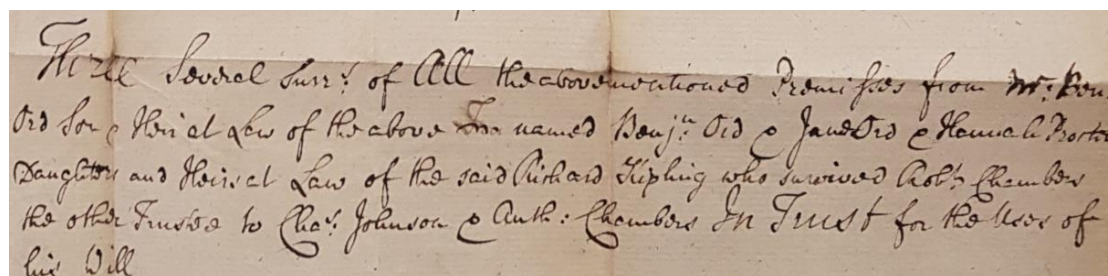 Three Several Surrs. of All the abovementioned Premisses from Mr. Ben
Ord Son & Heir at Law of the above named Benjn. Ord & Jane Ord & Hannah Procter
Daughters and Heirs at Law of the said Richard Kipling who survived Robt. Chambers
the other Trustee to Chas. Johnson & Anth: Chambers In Trust for the Uses of
his Will